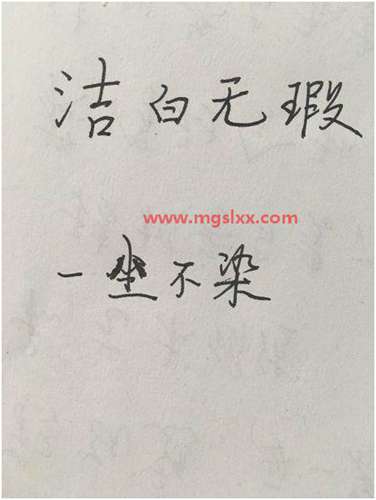 洁白无瑕
www.mgslxx.com
一尘不染